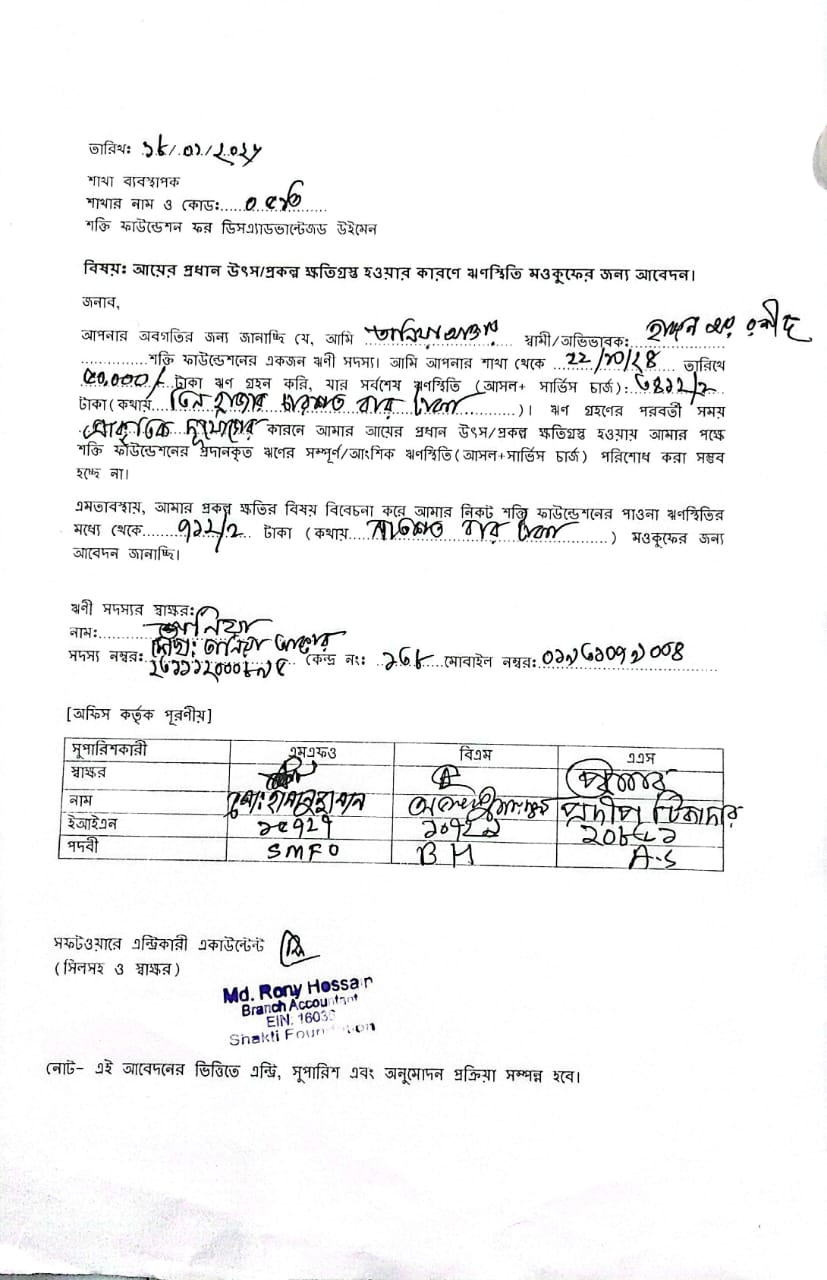 তারিখঃ ১৮/০১/২০২৫
শাখা ব্যবস্থাপক
শাখার নাম ও কোড:......০৫৭৬
শক্তি ফাউন্ডেশন ফর ডিসএ্যাডভান্টেজড উইমেন
বিষয়ঃ আয়ের প্রধান উৎস/প্রকল্প ক্ষতিগ্রস্থ হওয়ার কারণে ঋণস্থিতি মওকুফের জন্য আবেদন।
জনাব,
আপনার অবগতির জন্য জানাচ্ছি যে, আমি তানিয়া আক্তার স্বামী/অভিভাবক: হারুন অর রশীদ
শক্তি ফাউন্ডেশনের একজন ঋণী সদস্য। আমি আপনার শাখা থেকে ২২/১০/২৪ তারিখে
৫০,০০০/- টাকা ঋণ গ্রহন করি, যার সর্বশেষ ঋণস্থিতি (আসল+ সার্ভিস চার্জ): ৩৪১২/২
টাকা (কথায় তিন হাজার চারশত বার টাকা )। ঋণ গ্রহণের পরবর্তী সময়
প্রাকৃতিক দূর্যোগের কারনে আমার আয়ের প্রধান উৎস/প্রকল্প ক্ষতিগ্রস্থ হওয়ায় আমার পক্ষে
শক্তি ফাউন্ডেশনের প্রদানকৃত ঋণের সম্পূর্ণ/আংশিক ঋণস্থিতি(আসল+সার্ভিস চার্জ) পরিশোধ করা সম্ভব
হচ্ছে না।
এমতাবস্থায়, আমার প্রকল্প ক্ষতির বিষয় বিবেচনা করে আমার নিকট শক্তি ফাউন্ডেশনের পাওনা ঋণস্থিতির
মধ্যে থেকে......৭১২/২ টাকা (কথায় সাতশত বার টাকা ) মওকুফের জন্য
আবেদন জানাচ্ছি।
ঋণী সদস্যর স্বাক্ষর: তানিয়া
নাম: তানিয়া আক্তার
সদস্য নম্বর: কেন্দ্র নং: ১৬৮ মোবাইল নম্বর:
[অফিস কর্তৃক পূরণীয়]
সুপারিশকারী এমএফও বিএম এএস
স্বাক্ষর
নাম মোঃ প্রদীপ টিকাদার
ইআইএন ১৫৭২৭ ২০৮৮১
পদবী SMFO BM A-S
সফটওয়ারে এন্ট্রিকারী একাউন্টেন্ট
(সিলসহ ও স্বাক্ষর)
Md. Rony Hossain
Branch Accountant
EIN: 1603
Shakti Foundation
নোট- এই আবেদনের ভিত্তিতে এন্ট্রি, সুপারিশ এবং অনুমোদন প্রক্রিয়া সম্পন্ন হবে।